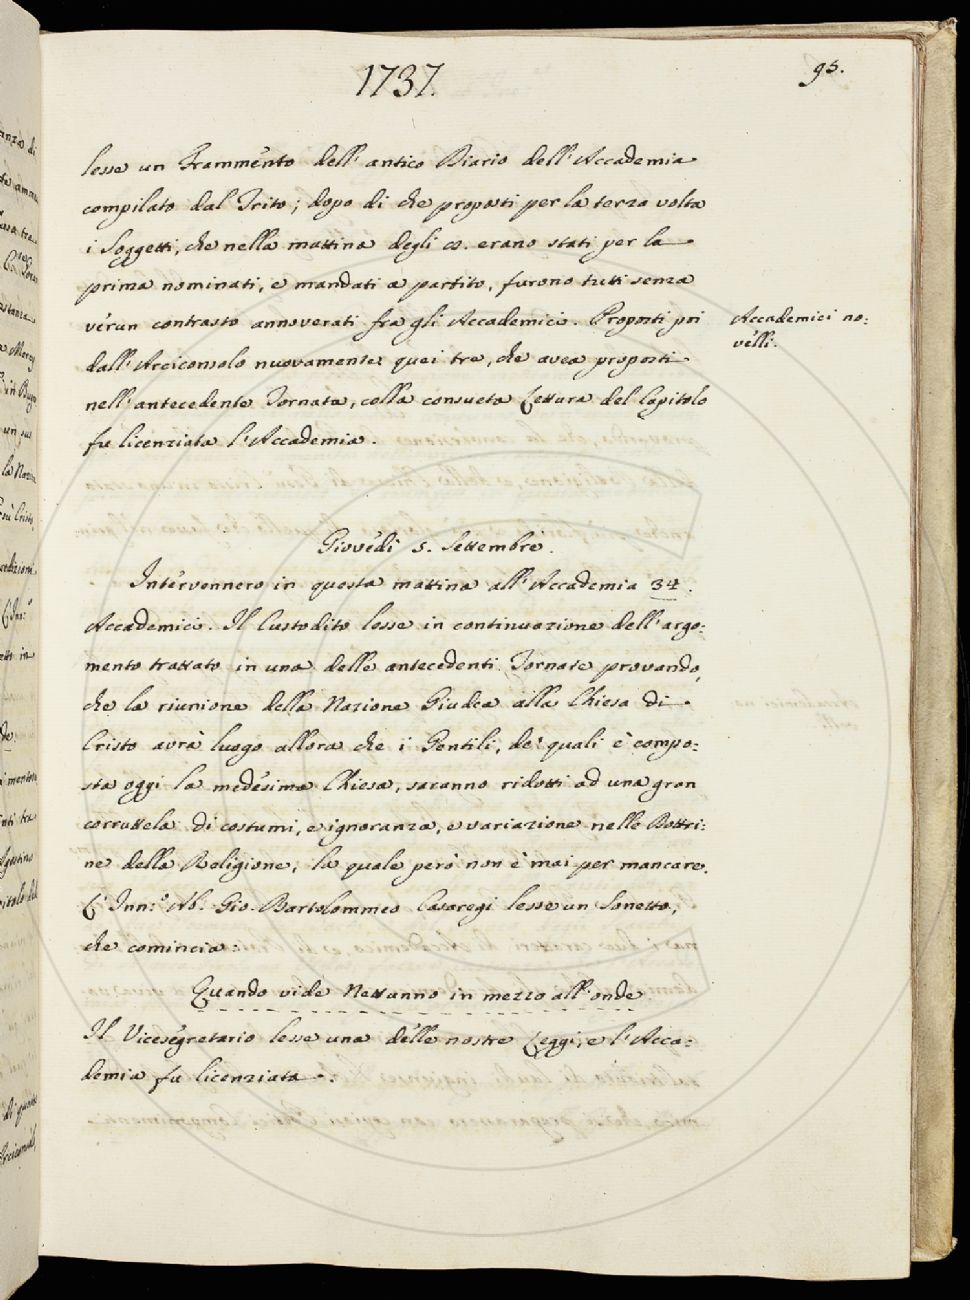 1737.
95.
lesse un Frammento dell'antico Diario dell'Accademia
compilato dal Trito; dopo di che proposti per la terza volta
i Soggetti, che nella mattina degli 8. erano stati per la
prima nominati, e mandati a partito, furono tutti senza
verun contrasto annoverati fra gli Accademici. Proposti poi
Accademici no:
velli.
dall'Arciconsolo nuovamente quei tre, che avea proposti
nell'antecedente Tornata, colla consueta Lettura del Capitolo
fu licenziata l'Accademia.
Giovedì 5. Settembre.
Intervennero in questa mattina all'Accademia 34.
Accademici. Il Custodito lesse in continuazione dell'argo:
mento trattato in una delle antecedenti Tornate provando,
che la riunione della Nazione Giudea alla Chiesa di
Cristo avrà luogo allora che i Gentili, de' quali è compo:
sta oggi la medesima Chiesa, saranno ridotti ad una gran
corruttela di costumi, e ignoranza, e variazione nelle Dottri:
ne della Religione; la quale però non è mai per mancare.
L'Inn:º Ab. Gio. Bartolommeo Casaregi lesse un Sonetto,
che comincia:
Quando vide Nettunno in mezzo all'onde
Il Vicesegretario lesse una delle nostre Leggi, e l'Acca:
demia fu licenziata.